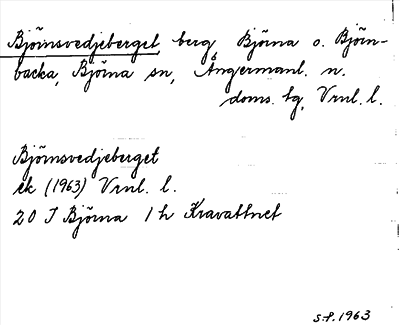 Björnsvedjeberget berg Björna o. Björn-
backa, Björna sn, Ångermanl. n.
doms. hg, Vrnl. l.
Björnsvedjeberget
ek (1963) Vrnl. l.
20 I Björna 1 h Kravattnet
S.P. 1963